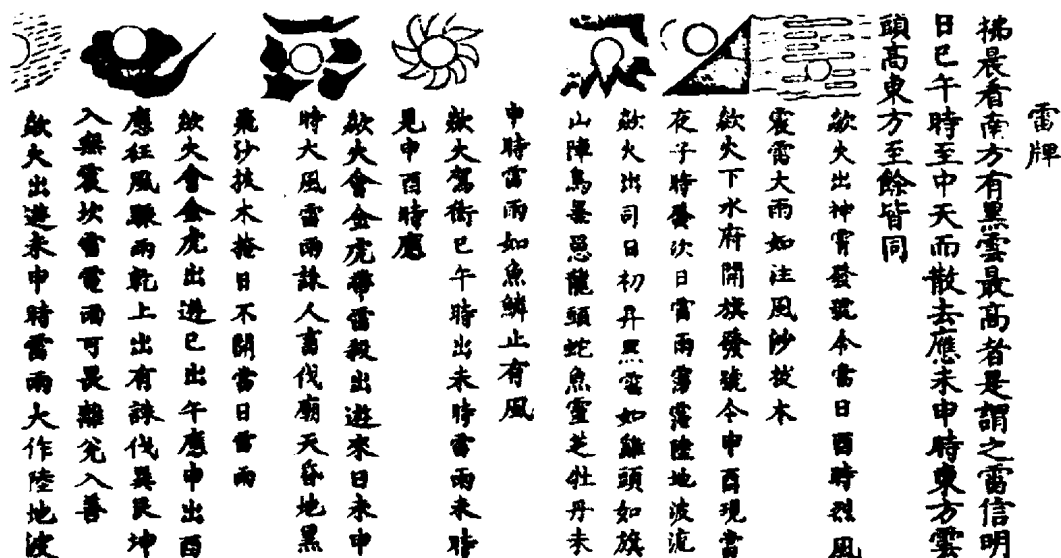 雷牌
拂晨看南方有黑雲最高者是謂之雷信明
日巳午時至中天而散去應未申時東方雲
頭高東方至餘皆同
欻火出神霄發號令當日酉時烈風
霆雷大雨如注風沙拔木
欻火下水府開旗發號令申酉現當
夜子時發次日雷雨霶霈陸地波流
欻火出司日初升黑雲如雞頭如旗
山陣鳥暴惡龍頭蛇魚靈芝牡丹未
申時雷雨如魚鱗止有風
欻火駕衙巳午時出未時雷雨未時
見申酉時應
欻火會金虎帶雷殺出遊來日未申
時大風雷雨誅人畜伐廟天昏地黑
飛沙拔木掩日不開當日雷雨
欻火會金虎出遊巳出午應申出酉
應狂風驟雨乾上出有誅伐巽艮坤
入無震坎雷電雨可畏離兌入善
欻火出遊未申時雷雨大作陸地波